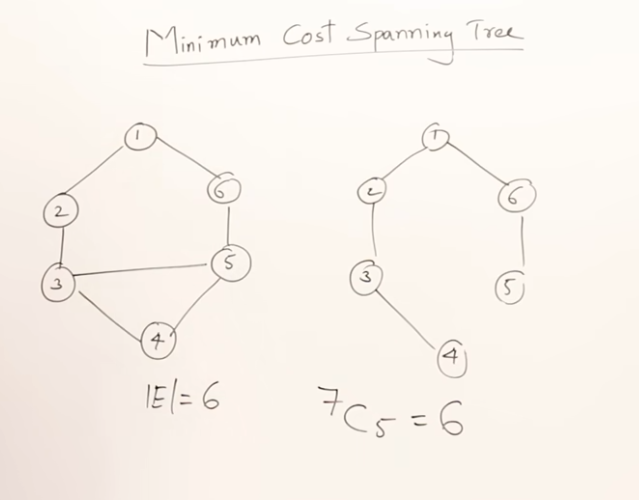 Minimum Cost Spanning Tree
1
1
2
6
2
6
3
5
3
5
4
4
|E|= 6
⁷C₅ = 6